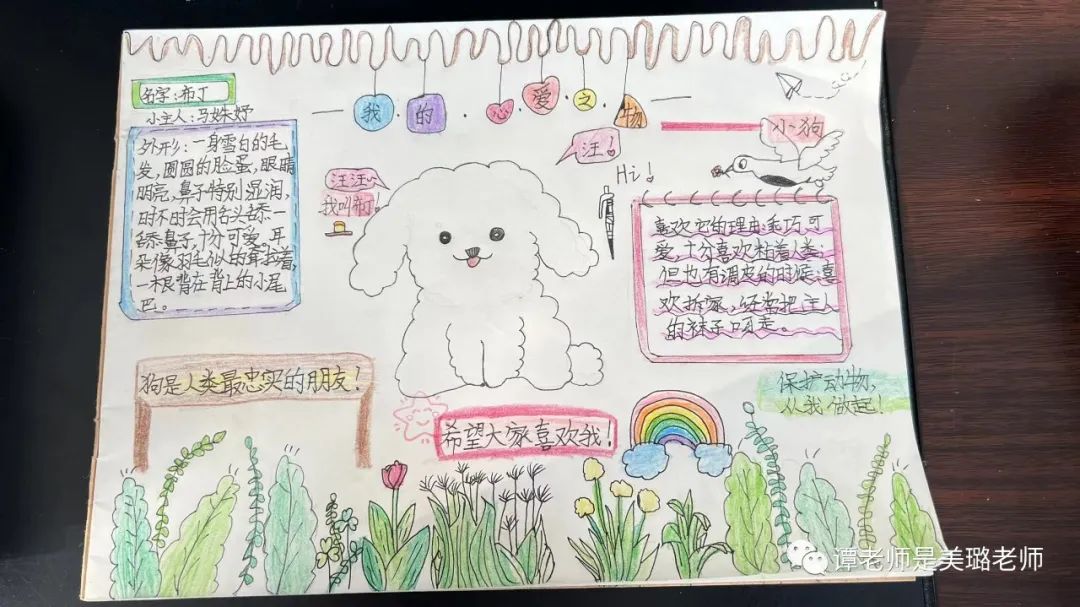 我的心爱之物
名字:布丁
小主人:马姝妤
外形:一身雪白的毛
发,圆圆的脸蛋,眼睛
明亮,鼻子特别湿润,
时不时会用舌头舔一
舔鼻子,十分可爱。耳
朵像羽毛似的耷拉着,
一根背在背上的小尾
巴。
汪汪~
我叫布丁!
汪!
Hi!
小狗
喜欢它的理由:乖巧可
爱,十分喜欢粘着人类;
但也有调皮的时候:喜
欢拆家,还常把主人
的袜子叼走。
狗是人类最忠实的朋友!
希望大家喜欢我!
保护动物,
从我做起!
谭老师是美璐老师